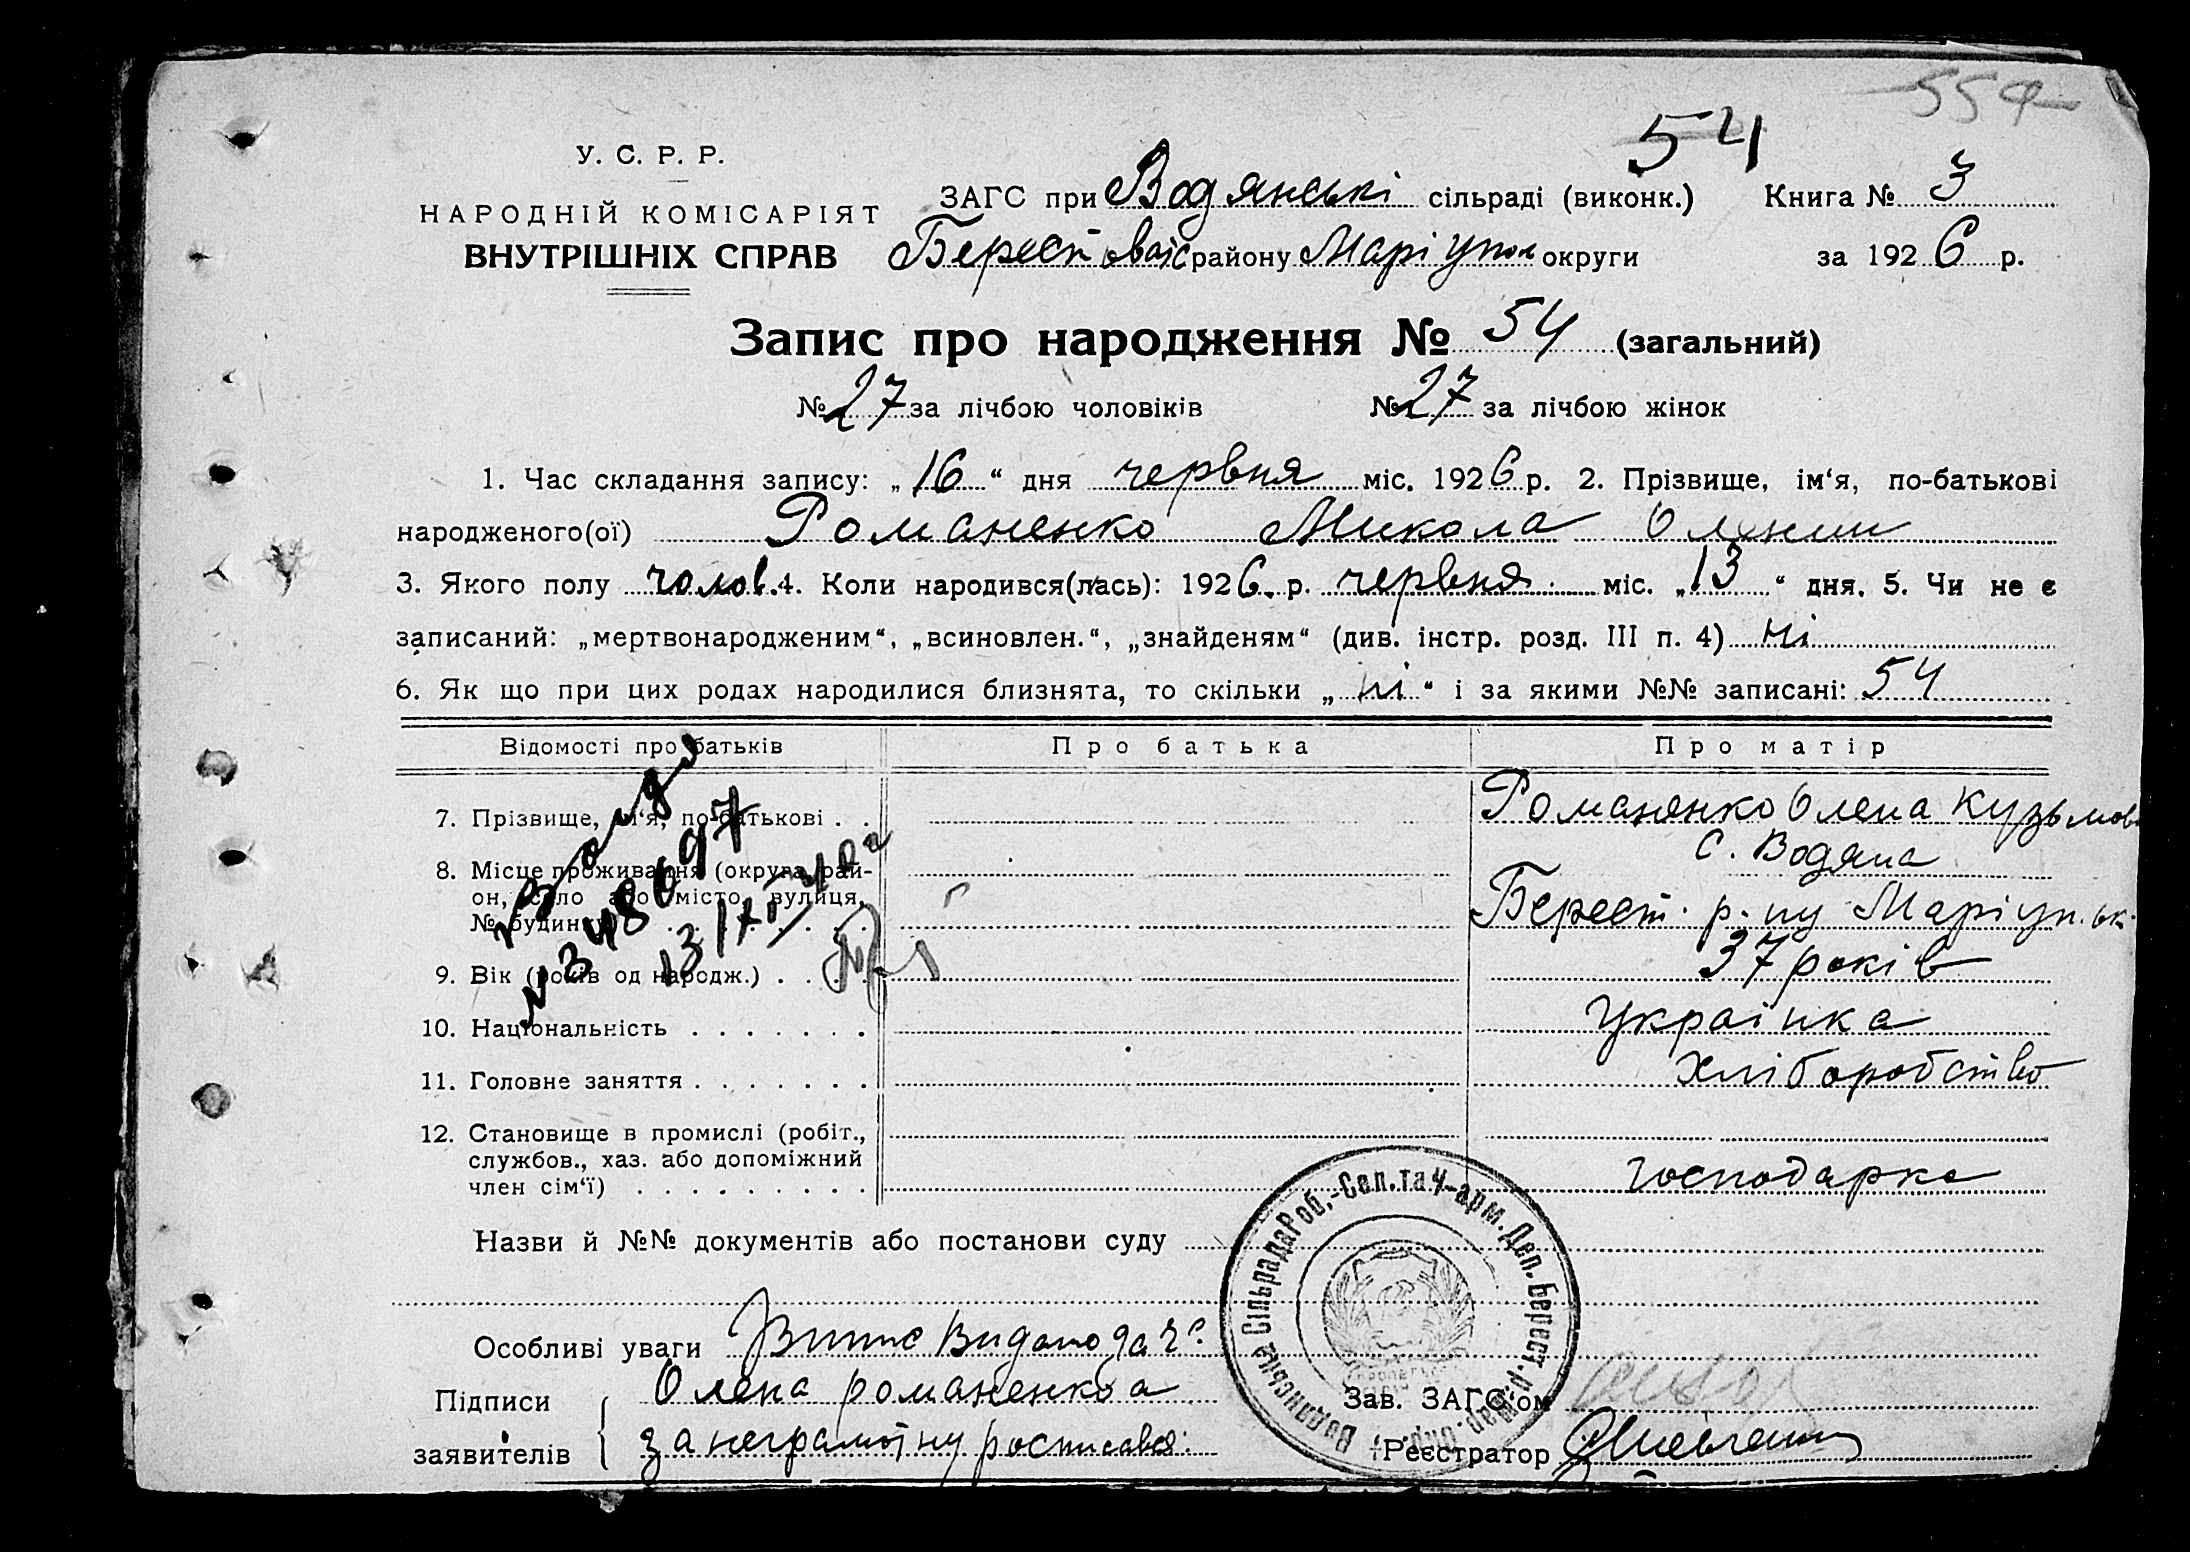 554
54
У. С. Р. Р.
НАРОДНІЙ КОМІСАРІЯТ
ВНУТРІШНІХ СПРАВ
ЗАГС при Водянські сільраді (виконк.) Книга № 3
Берестоваїс району Маріупол округи за 1926 р.
Запис про народження № 54 (загальний)
№ 27 за лічбою чоловіків № 27 за лічбою жінок
1. Час складання запису: „16“ дня червня міс. 1926 р. 2. Прізвище, ім‘я, по-батькові
народженого(ої) Романенко Микола
3. Якого полу чолов. 4. Коли народився(лась): 1926. р. червня міс. „13“ дня. 5. Чи не є
записаний: „мертвонародженим“, „всиновлен.“, „знайденям“ (див. інстр. розд. III п. 4) ні
6. Як що при цих родах народилися близнята, то скільки „ні“ і за якими №№ записані: 54
Відомості про батьків Про батька Про матір
7. Прізвище, ім‘я, по-батькові . . Романенко Олена Кузьмов
8. Місце проживання (округа, рай-
он, село або місто, вулиця,
№ будинку)
с. Водяна
Берест. р-ну Маріуп. ок.
9. Вік (років од народж.) . . . . 37 років
10. Національність . . . . . . . Українка
11. Головне заняття . . . . . . . Хліборобство
12. Становище в промислі (робіт.,
службов., хаз. або допоміжний
член сім‘ї) . . . . . . . . .
господарка
№ 348697
Назви й №№ документів або постанови суду
Водянська Сільрада Роб.-Сел. та Ч-арм. Деп. Берест. р.
Особливі уваги
Підписи
заявителів
Олена романенко а
за неграмотну росписався
Зав. ЗАГС‘ом
Реєстратор